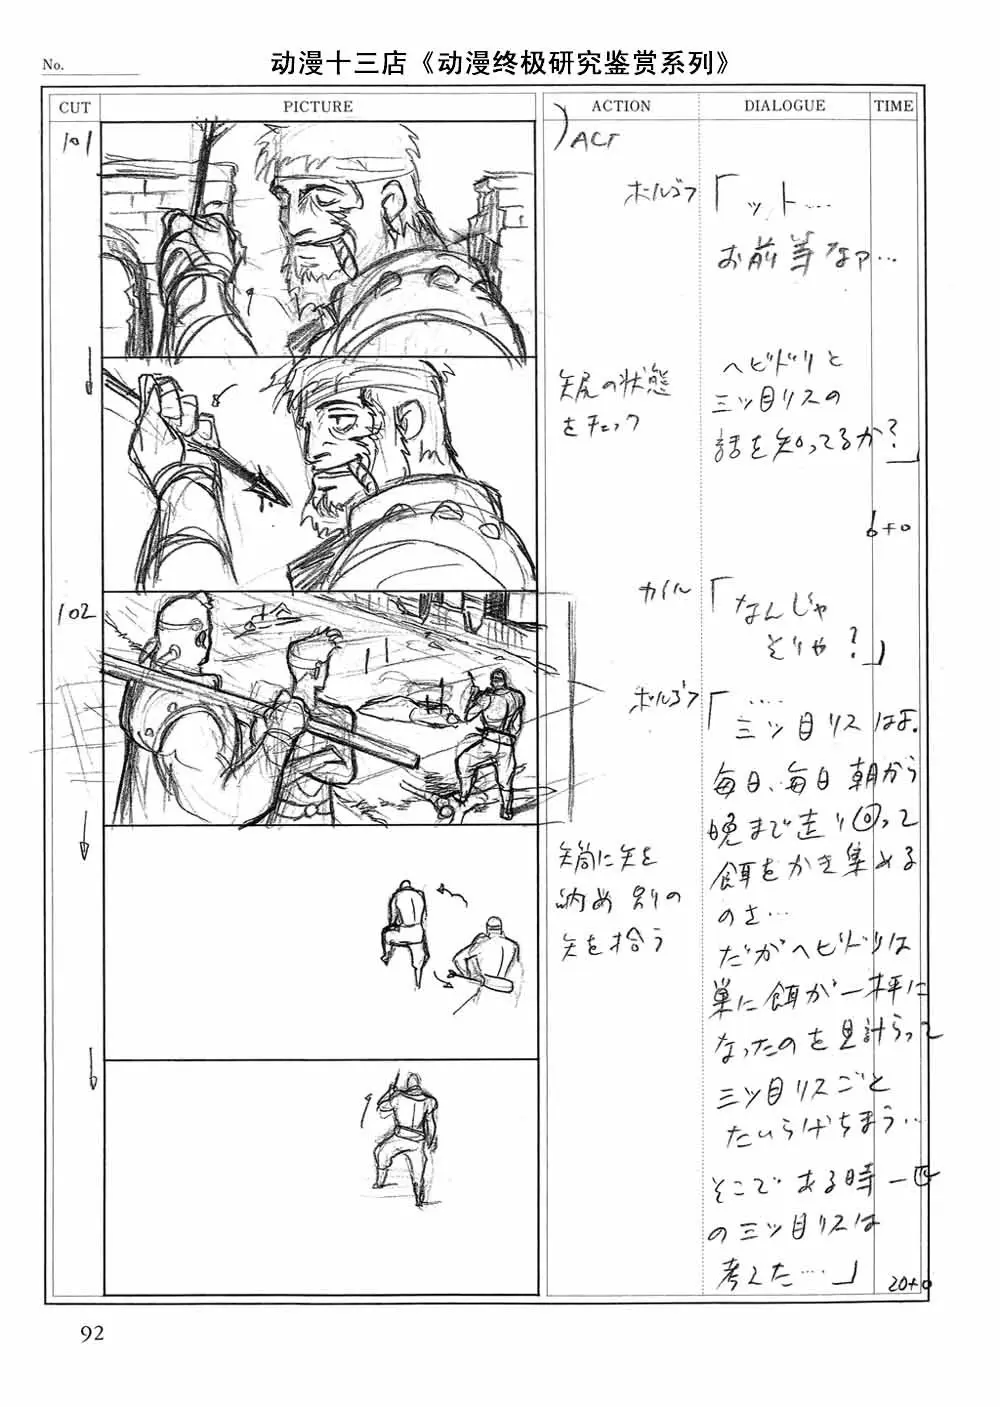 No.
动漫十三店《动漫终极研究鉴赏系列》
CUT PICTURE ACTION DIALOGUE TIME
101
ACT
ボルゴフ
「ット…
お前等なァ…
矢尻の状態
をチェック
ヘビドリと
三ツ目リスの
話を知ってるか?」
6+0
102
カイル
「なんじゃ
そりゃ?」
ボルゴフ
「……
三ツ目リスはよ。
毎日、毎日朝から
晩まで走り回って
餌をかき集める
のさ…
矢筒に矢を
納め別の
矢を拾う
だがヘビドリは
巣に餌が一杯に
なったのを見計らって
三ツ目リスごと
たいらげちまう…
そこである時一匹
の三ツ目リスは
考えた……」
20+0
92